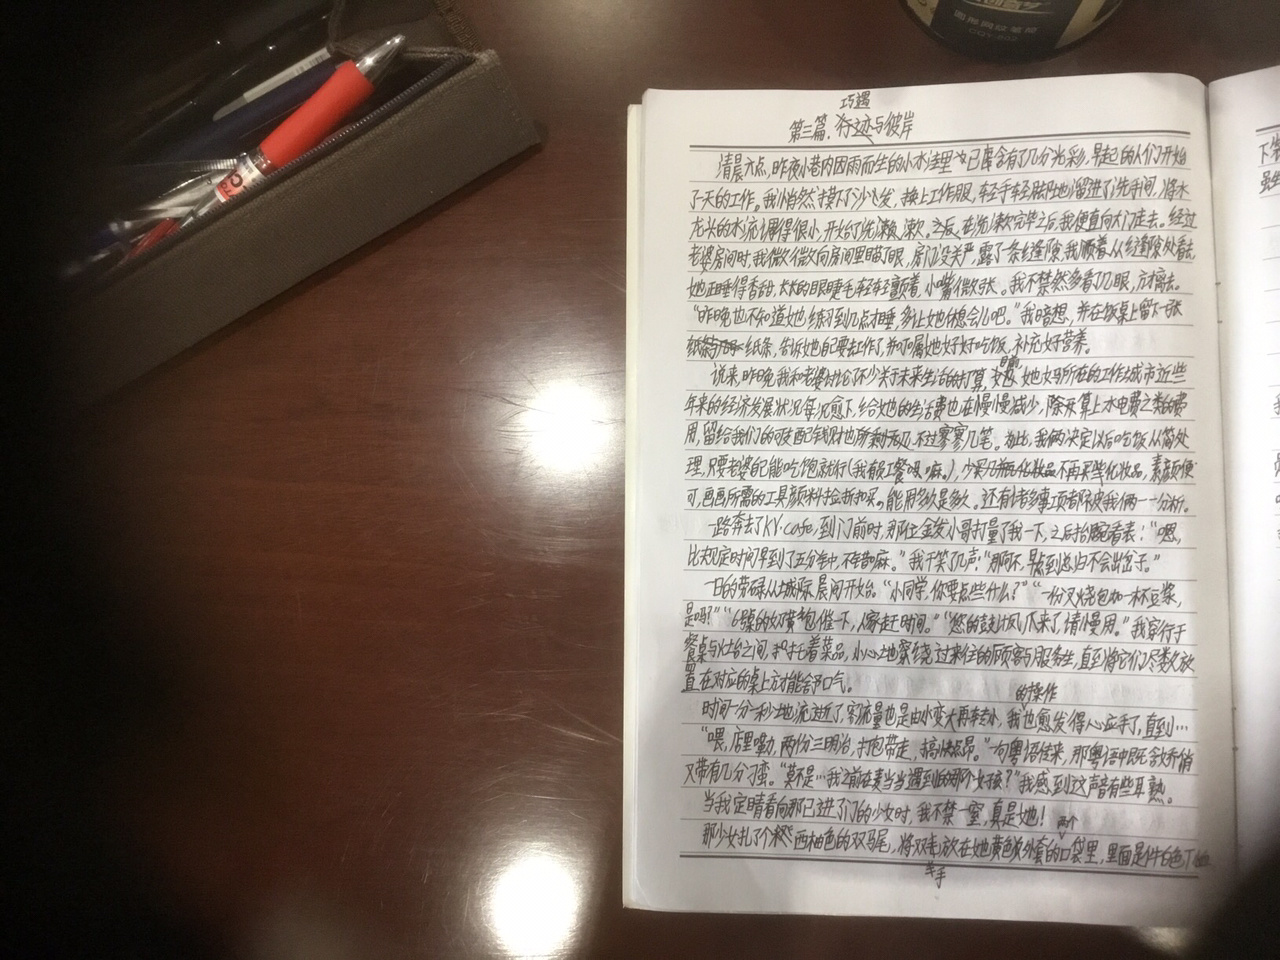 巧遇
第三篇. 行迹与彼岸
清晨六点，昨夜小巷内因雨而生的小水洼里已蕴含有了几分光彩，早起的人们开始
了一天的工作。我悄然摸了沙发，换上工作服，轻手轻脚地溜进了洗手间，将水
龙头的水流调得很小，开始了洗漱。之后，在洗漱完毕之后，我便直向大门走去。经过
老婆房间时，我微微向房间里瞄了眼，房门没关严，露了条缝隙，我顺着从缝隙处看去，
她正睡得香甜，长长的眼睫毛轻轻颤着，小嘴微张。我不禁然多看了几眼，方才离去。
“昨晚也不知道她练习到几点才睡，多让她休憩会儿吧。”我暗想，并在饭桌上留下一张
纸条，告诉她自己要去工作了，并叮嘱她好好吃饭，补充好营养。
说来，昨晚我和老婆讨论了不少关于未来生活的打算，目前她妈所在的工作城市近些
年来的经济发展状况每况愈下，给她的生活费也在慢慢减少，除开算上水电费之类的费
用，留给我们的可支配钱财也所剩无几，不过寥寥几笔。为此，我俩决定以后吃饭从简处
理，只要老婆自己能吃饱就行（我有员工餐呗嘛。），少买几瓶化妆品不再买些化妆品，素颜便
可，画画所需的工具颜料捡折扣买。能用多久是多久。还有诸多事项都陆被我俩一一分析。
一路奔去了KY·cafe，到门前时，那位金发小哥打量了我一下，之后抬腕看表：“嗯，
比规定时间早到了五分钟，不错嘛。”我干笑了几声：“那啊，早点到总归不会出岔子。”
一日的劳碌从城际晨间开始。“小同学，你要点些什么？”“一份叉烧包加一杯豆浆，
是吗？”“6号桌的奶黄包催一下，人家赶时间。”“您的豉汁凤爪来了，请慢用。”我穿行于
餐桌与灶台之间，护托着菜品，小心地萦绕过来往的顾客与服务生，直至将它们尽数放
置在对应的桌上方才能舒口气。
时间一分一秒地流逝了，客流量也是由小变大再转小，我的操作也愈发得心应手了，直到…
“喂，店里嘅，两份三明治，打包带走，搞快点昂。”一句粤语传来，那粤语中既含娇俏
又带有几分刁蛮。“莫不是…我之前在麦当当遇到的那个女孩？”我感到这声音有些耳熟。
当我定睛看向那已进了门的少女时，我不禁一窒，真是她！
那少女扎了个西柚色的双马尾，将双手放在她黄色外套的两个口袋里，里面是件白色T恤